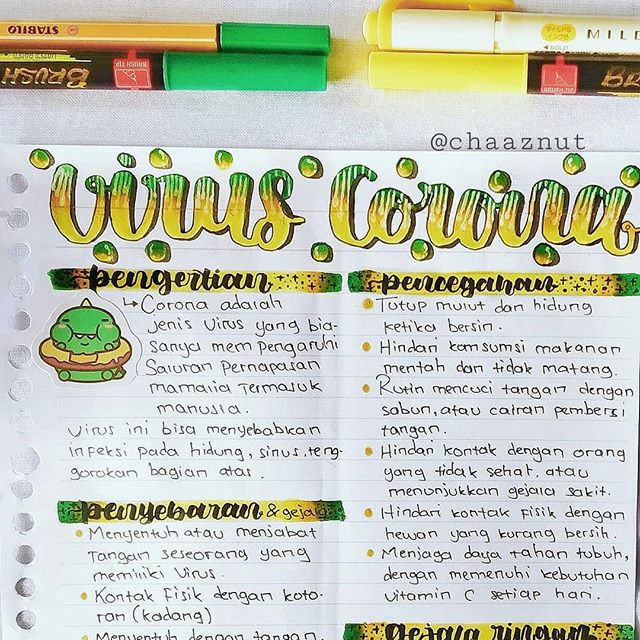 STABILO
BRUSH
BRUSH TIP
MILD
GOLD
BRUSH TIP
@chaaznut
Virus Corona
pengertian
↳ Corona adalah
jenis virus yang bia-
sanya mempengaruhi
Saluran Pernapasan
mamalia Termasuk
manusia.
Virus ini bisa menyebabkan
infeksi pada hidung, sinus, teng-
gorokan bagian atas.
penyebaran & gejala
• Menyentuh atau menjabat
Tangan seseorang yang
memiliki virus.
• Kontak Fisik dengan koto-
ran (kadang)
• Menyentuh dengan tangan.
pencegahan
• Tutup mulut dan hidung
ketika bersin.
• Hindari konsumsi makanan
mentah dan tidak matang.
• Rutin mencuci tangan dengan
sabun, atau cairan pembersi
tangan.
• Hindari kontak dengan orang
yang tidak sehat, atau
menunjukkan gejala sakit.
• Hindari kontak fisik dengan
hewan yang kurang bersih.
• Menjaga daya tahan tubuh,
dengan memenuhi kebutuhan
vitamin C setiap hari.
gejala ringan